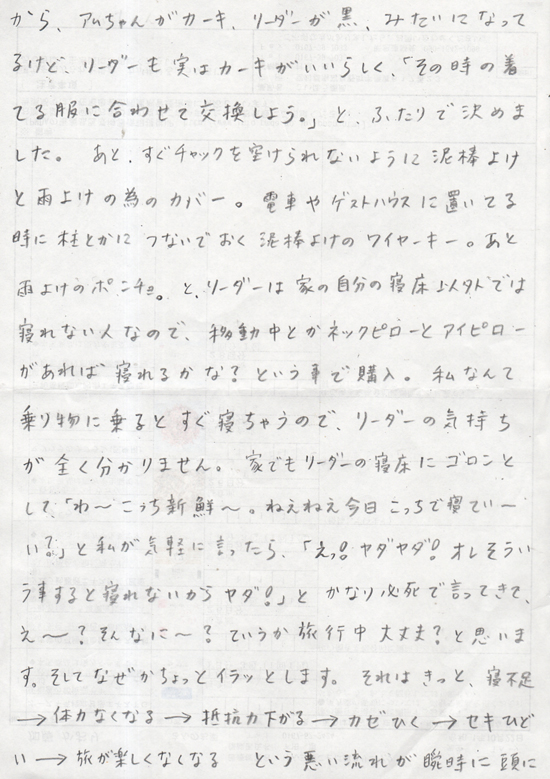 から、アムちゃんがカーキ、リーダーが黒、みたいになって
るけど、リーダーも実はカーキがいいらしく、「その時の着
てる服に合わせて交換しよう。」と、ふたりで決めま
した。 あと、すぐチャックを空けられないように泥棒よけ
と雨よけの為のカバー。電車やゲストハウスに置いてる
時に柱とかにつないでおく泥棒よけのワイヤーキー。あと
雨よけのポンチョ。と、リーダーは家の自分の寝床以外では
寝れない人なので、移動中とかネックピローとアイピロー
があれば寝れるかな?という事で購入。私なんて
乗り物に乗るとすぐ寝ちゃうので、リーダーの気持ち
が全く分かりません。家でもリーダーの寝床にゴロンと
して、「わ〜こっち新鮮〜。ねえねえ今日こっちで寝てい〜
い?」と私が気軽に言ったら、「えっ!ヤダヤダ!オレそうい
う事すると寝れないからヤダ!」と かなり必死で言ってきて、
え〜?そんなに〜?ていうか旅行中大丈夫?と思いま
す。そしてなぜかちょっとイラッとします。それはきっと、寝不足
→体力なくなる→抵抗力下がる→カゼひく→セキひど
い→旅が楽しくなくなる という悪い流れが瞬時に頭に